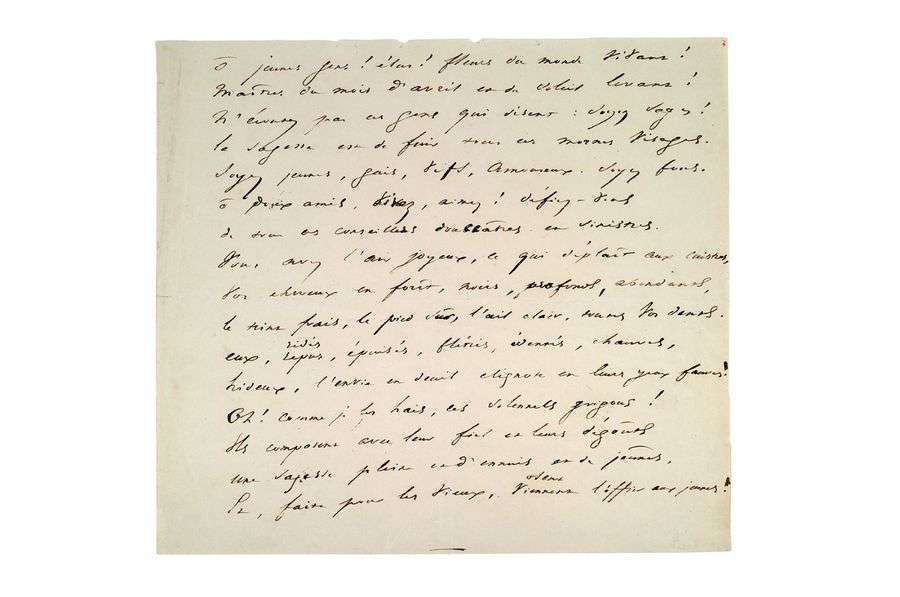 ô jeunes gens ! élus ! fleurs du monde vivant !
Maîtres du mois d'avril et du soleil levant !
N'écoutez pas ces gens qui disent : soyez sages !
la sagesse est de fuir tous ces mornes visages.
Soyez jeunes, gais, vifs, amoureux. Soyez fous.
ô doux amis, vivez, aimez ! défiez-vous
de tous ces conseillers douceâtres et sinistres.
Vous avez l'air joyeux, ce qui déplaît aux cuistres,
Vos cheveux en forêt, noirs, profonds, abondants,
le teint frais, le pied sûr, l'œil clair, toutes vos dents.
ridés
eux, repus, épuisés, flétris, édentés, chauves,
hideux, l'envie en deuil clignote en leurs yeux fauves !
Oh ! comme je les hais, ces solennels grigous !
Ils composent avec leur fiel et leurs dégoûts
une sagesse pleine et d'ennuis et de jeûnes,
osent
Et, faite pour les vieux, viennent l'offrir aux jeunes !